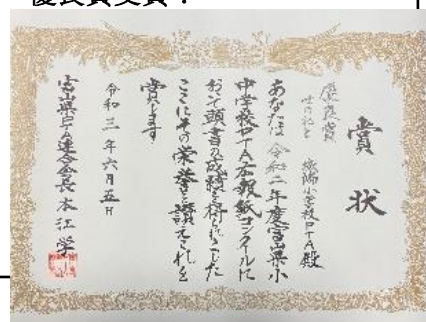 優良賞受賞！
賞状
優良賞
小学校PTA殿
あなたは令和二年度富山県小
中学校PTA広報紙コンクールに
おいて頭書の成績を得られました
ここにその栄誉を讃えこれを
賞します
令和三年六月五日
富山県PTA連合会長 本江学